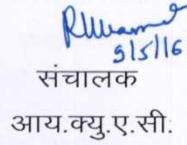 9/5/16
संचालक
आय.क्यु.ए.सी.